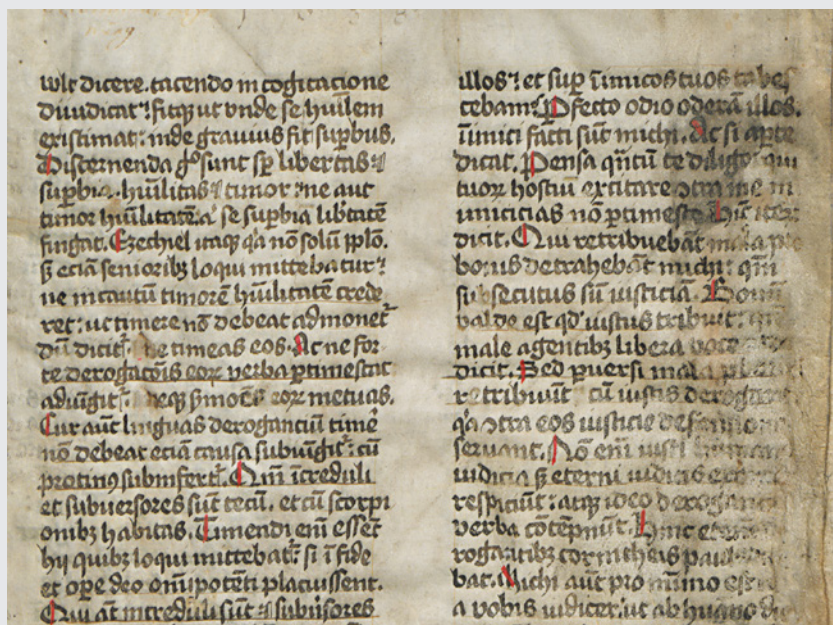 wlt dicere. tacendo in cogitacione
diiudicat: fitq; ut vnde se hūilem
existimat: inde grauius fit suꝑbus.
Discernenda gͦ sunt sꝑ libertas ⁊
suꝑbia. hūilitas ⁊ timor: ne aut
timor hūilitatē: a' se suꝑbia lib̄tatē
fingat. Ezechiel itaq; q'a nō solū ꝓplo.
s; eciā seniorib; loqui mittebatur:
ne incautū timorē hūilitatē crede
ret: ut timere nō debeat admonet᷑
dū dicit᷑. Ne timeas eos. Ac ne for
te derogatōis eoꝝ verba ꝑtimescat
adiūgit᷑. neq; ẜmoēs eoꝝ metuas.
Cur aūt linguas derogantiū timē
nō debeat eciā causa subiūgit᷑: cū
protinꝰ subinfert᷑. Qm̄ īcreduli
et subuersores sūt tecū. et cū scorpi
onib; habitas. Timendi em̄ essēt
hii quib; loqui mittebat᷑: si ī fide
et oꝑe deo om̄ipotēti placuissent.
Qui aūt increduli sūt ⁊ subūsores
illos: et suꝑ īimicos tuos tabes
cebam: Ꝑfecto odio oderā illos.
īimici facti sūt michi. Ac si aꝑte
dicat. Pensa q̄ntū te diligo: qui
tuoꝝ hostiū excitare ɔtra me in
imicicias nō ꝑtimesco. Hīc iter
dicit. Qui retribuebāt mala pro
bonis detrahebāt michi: qm̄
subsecutus sū iusticiā. Bonū
valde est qd' iustus tribuit:
male agentib; libera voce
dicit. Sed ꝑuersi mala
retribuūt: cū iustis derogant
q'a ɔtra eos iusticie
seruant. Nō em̄ iusti humana
iudicia s; eterni iudicis
respiciūt: atq; ideo derogantiū
verba cōtēpnūt. Hinc
rogantib; corintheis
bat. Michi aūt pro minimo est
a vobis iudicer: ut ab huāo die